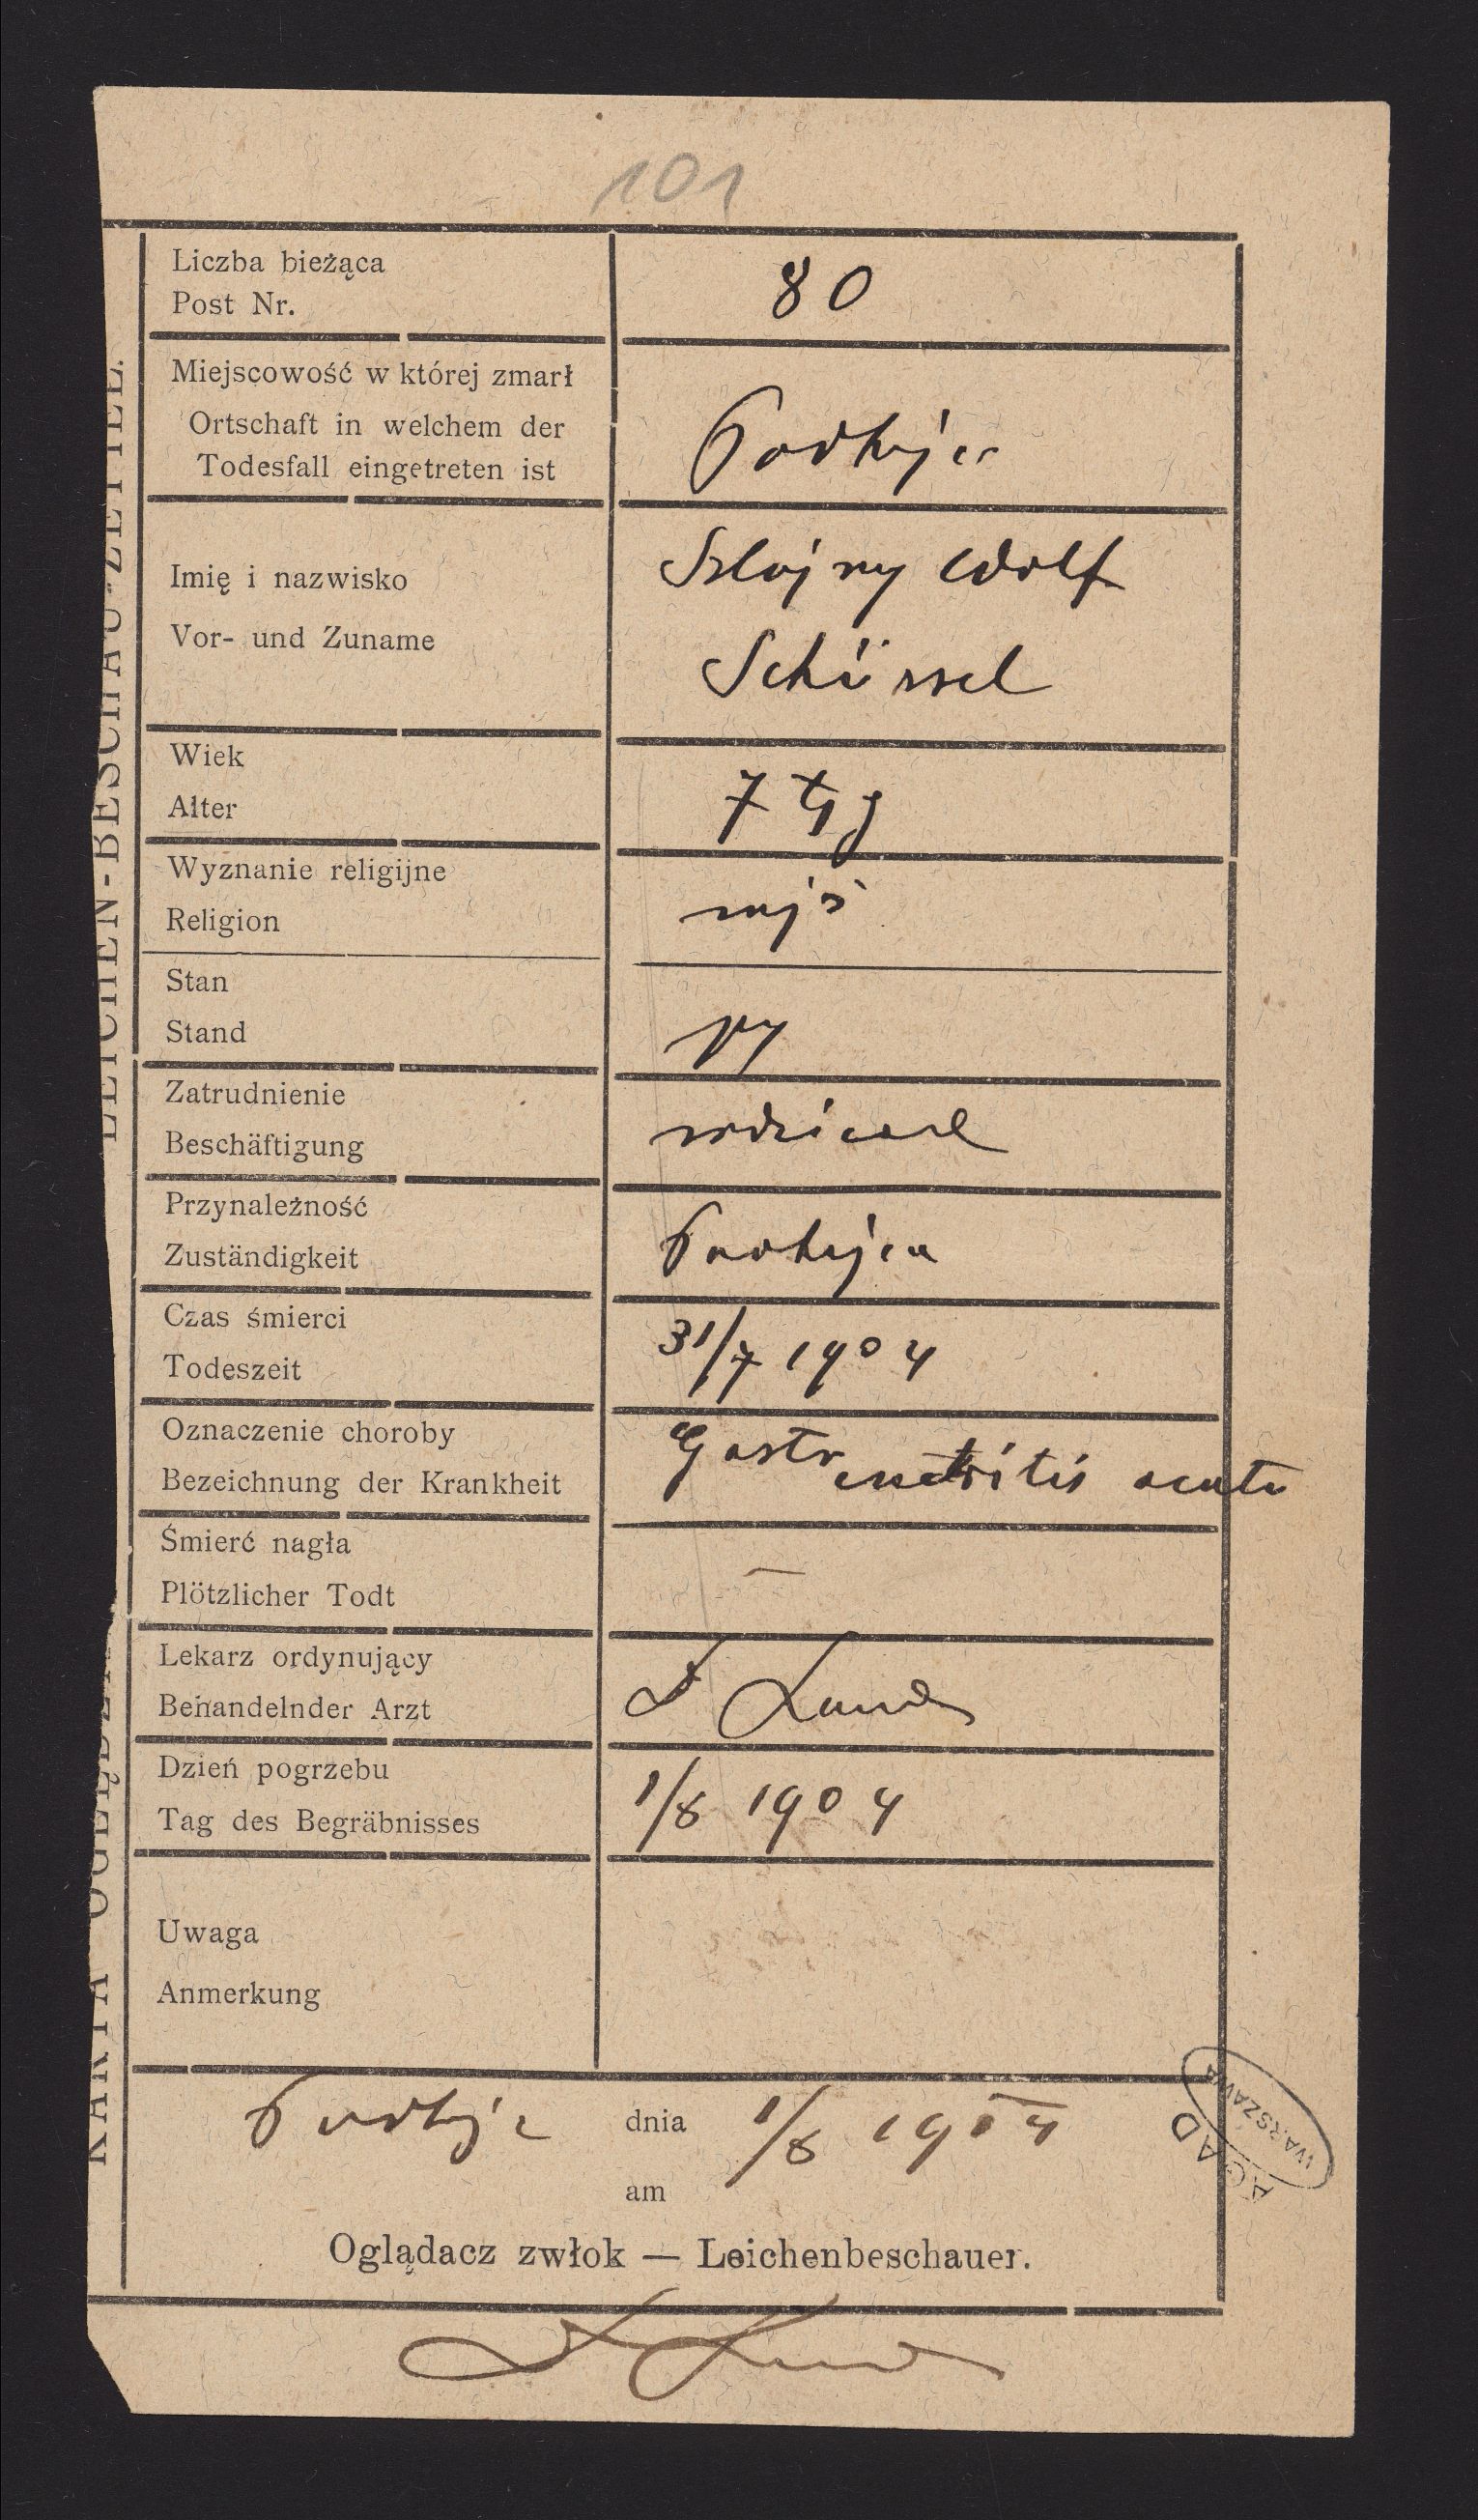 101
Liczba bieżąca
Post Nr.
80
Miejscowość w której zmarł
Ortschaft in welchem der
Todesfall eingetreten ist
Podhajce
Imię i nazwisko
Vor- und Zuname
Wolf
Schüssel
Wiek
Alter
7 tyg
Wyznanie religijne
Religion
mojż
Stan
Stand
Zatrudnienie
Beschäftigung
Przynależność
Zuständigkeit
Podhajce
Czas śmierci
Todeszeit
31/7 1904
Oznaczenie choroby
Bezeichnung der Krankheit
acuta
Śmierć nagła
Plötzlicher Todt
—
Lekarz ordynujący
Behandelnder Arzt
Dzień pogrzebu
Tag des Begräbnisses
1/8 1904
Uwaga
Anmerkung
dnia 1/8 1904
am
Oglądacz zwłok — Leichenbeschauer.
AGAD
WARSZAWA